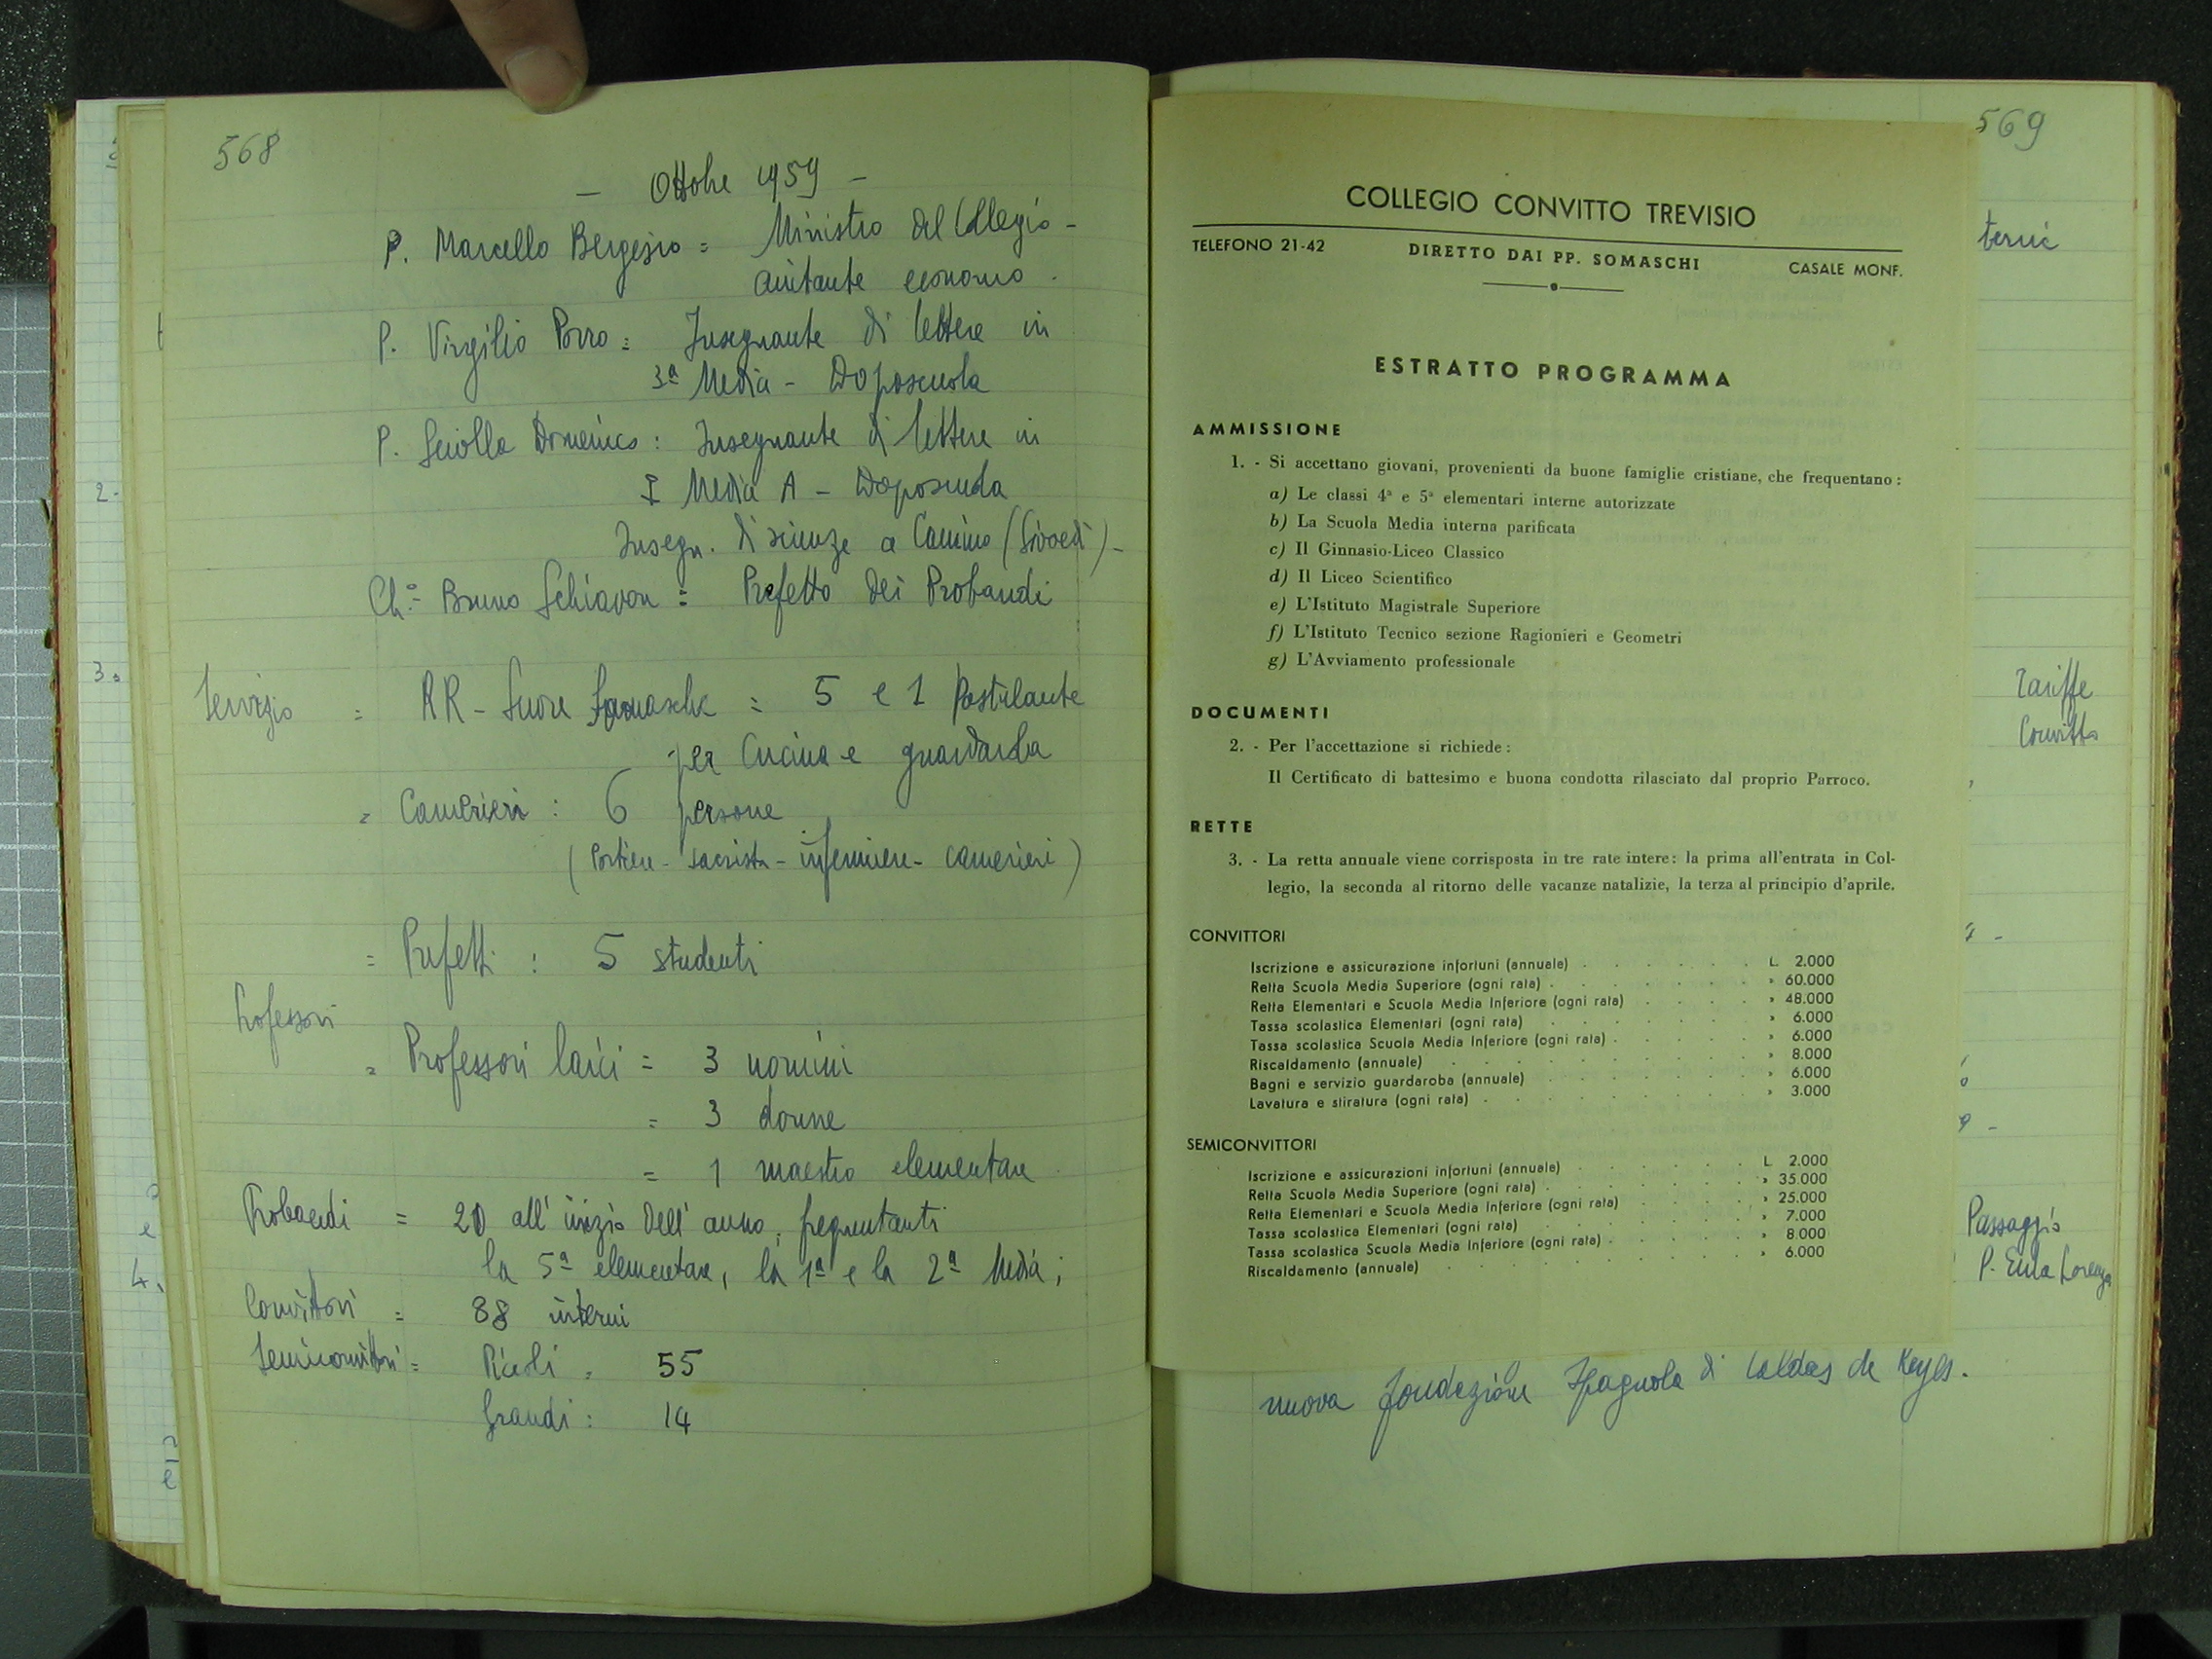 568
- Ottobre 1959 -
P. Marcello Bergesio = Ministro del Collegio -
aiutante economo.
P. Virgilio Porro = Insegnante di lettere in
3ª Media - Doposcuola
P. Sciolla Domenico : Insegnante di lettere in
I Media A - Doposcuola
Insegn. di scienze a Camino (Giovedì) -
Ch.º Bruno Schiavon = Prefetto dei Probandi
Servizio = RR - Suore Somasche = 5 e 1 Postulante
per Cucina e guardaroba
= Camerieri : 6 persone
(Portiere - sacrista - infermiere - camerieri)
= Prefetti : 5 studenti
Professori
= Professori laici = 3 uomini
= 3 donne
= 1 maestro elementare
Probandi = 20 all'inizio dell'anno, frequentanti
la 5ª elementare, la 1ª e la 2ª Media;
Convittori = 88 interni
Semiconvittori = Piccoli = 55
Grandi : 14
2.
3.
4.
569
COLLEGIO CONVITTO TREVISIO
TELEFONO 21-42 DIRETTO DAI PP. SOMASCHI CASALE MONF.
ESTRATTO PROGRAMMA
AMMISSIONE
1. - Si accettano giovani, provenienti da buone famiglie cristiane, che frequentano :
a) Le classi 4ª e 5ª elementari interne autorizzate
b) La Scuola Media interna parificata
c) Il Ginnasio-Liceo Classico
d) Il Liceo Scientifico
e) L'Istituto Magistrale Superiore
f) L'Istituto Tecnico sezione Ragionieri e Geometri
g) L'Avviamento professionale
DOCUMENTI
2. - Per l'accettazione si richiede :
Il Certificato di battesimo e buona condotta rilasciato dal proprio Parroco.
RETTE
3. - La retta annuale viene corrisposta in tre rate intere: la prima all'entrata in Col-
legio, la seconda al ritorno delle vacanze natalizie, la terza al principio d'aprile.
CONVITTORI
Iscrizione e assicurazione infortuni (annuale) . . . . . . L. 2.000
Retta Scuola Media Superiore (ogni rata) . . . . . . . » 60.000
Retta Elementari e Scuola Media Inferiore (ogni rata) . . . . » 48.000
Tassa scolastica Elementari (ogni rata) . . . . . . . » 6.000
Tassa scolastica Scuola Media Inferiore (ogni rata) . . . . . » 6.000
Riscaldamento (annuale) . . . . . . . . . » 8.000
Bagni e servizio guardaroba (annuale) . . . . . . . » 6.000
Lavatura e stiratura (ogni rata) . . . . . . . . » 3.000
SEMICONVITTORI
Iscrizione e assicurazioni infortuni (annuale) . . . . . . L. 2.000
Retta Scuola Media Superiore (ogni rata) . . . . . . . » 35.000
Retta Elementari e Scuola Media Inferiore (ogni rata) . . . . » 25.000
Tassa scolastica Elementari (ogni rata) . . . . . . . » 7.000
Tassa scolastica Scuola Media Inferiore (ogni rata) . . . . . » 8.000
Riscaldamento (annuale) . . . . . . . . . » 6.000
Tariffe
Convitto
Passaggio
nuova fondazione Spagnola di Caldas de Reyes.